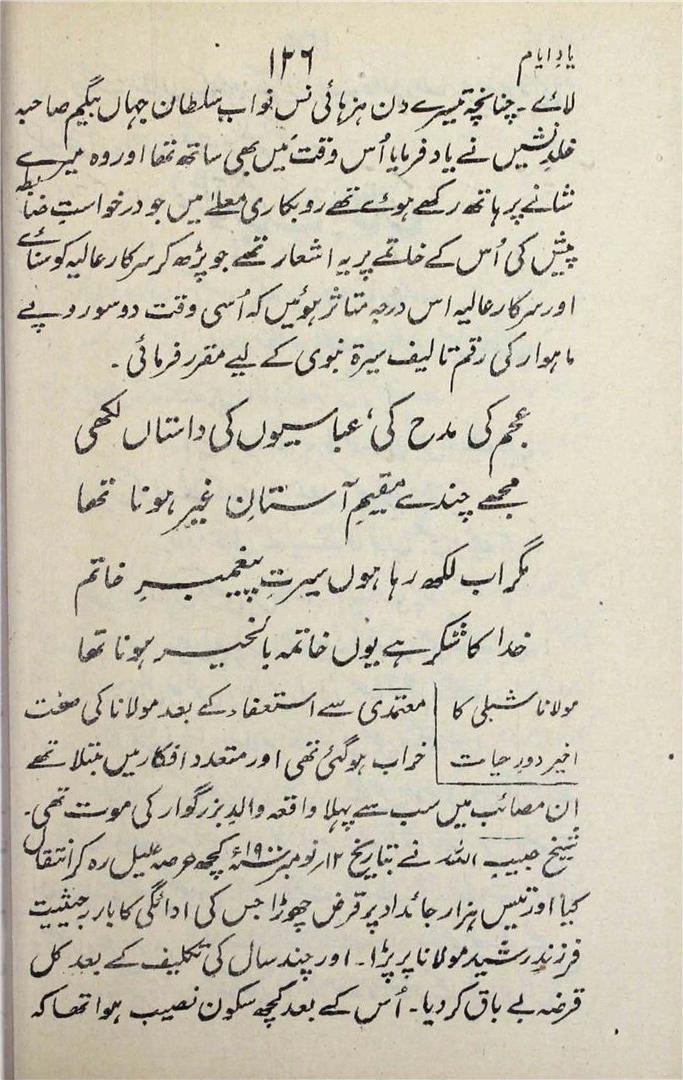 یادِ ایام
۱۲۶
لائے۔ چنانچہ تیسرے دن ہز ہائی نس نواب سلطان جہاں بیگم صاحبہ
خلد نشیں نے یاد فرمایا اُس وقت میں بھی ساتھ تھا اور وہ میرے
شانے پر ہاتھ رکھے ہوئے تھے روبکاری معلیٰ میں جو درخواست ضابطہ
پیش کی اُس کے خاتمے پر یہ اشعار تھے جو پڑھ کر سرکار عالیہ کو سنائے
اور سرکار عالیہ اس درجہ متاثر ہوئیں کہ اُسی وقت دو سو روپے
ماہوار کی رقم تالیف سیرۃ نبوی کے لیے مقرر فرمائی۔
عجم کی مدح کی، عباسیوں کی داستاں لکھی
مجھے چندے مقیمِ آستانِ غیر ہونا تھا
مگر اب لکھ رہا ہوں سیرتِ پیغمبرِ خاتم
خدا کا شکر ہے یوں خاتمہ بالخیر ہونا تھا
مولانا شبلی کا
اخیر دورِ حیات
معتمدی سے استعفاء کے بعد مولانا کی صحت
خراب ہو گئی تھی اور متعدد افکار میں مبتلا تھے
ان مصائب میں سب سے پہلا واقعہ والد بزرگوار کی موت تھی۔
شیخ حبیب اللہ نے بتاریخ ۱۲؍ نومبر ۱۹۰۰ء کچھ عرصہ علیل رہ کر انتقال
کیا اور تیس ہزار جائداد پر قرض چھوڑا جس کی ادائگی کا بار بہ حیثیت
فرزند رشید مولانا پر پڑا۔ اور چند سال کی تکلیف کے بعد کل
قرضہ بے باق کر دیا۔ اُس کے بعد کچھ سکون نصیب ہوا تھا کہ